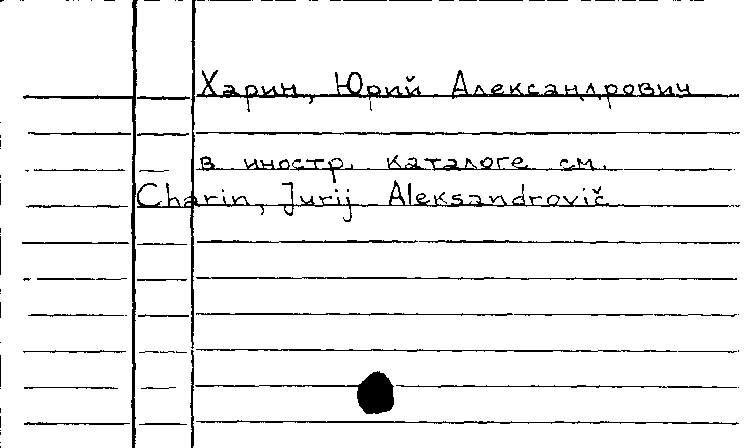 Харин, Юрий Александрович
в иностр. каталоге см.
Charin, Jurij Aleksandrovič